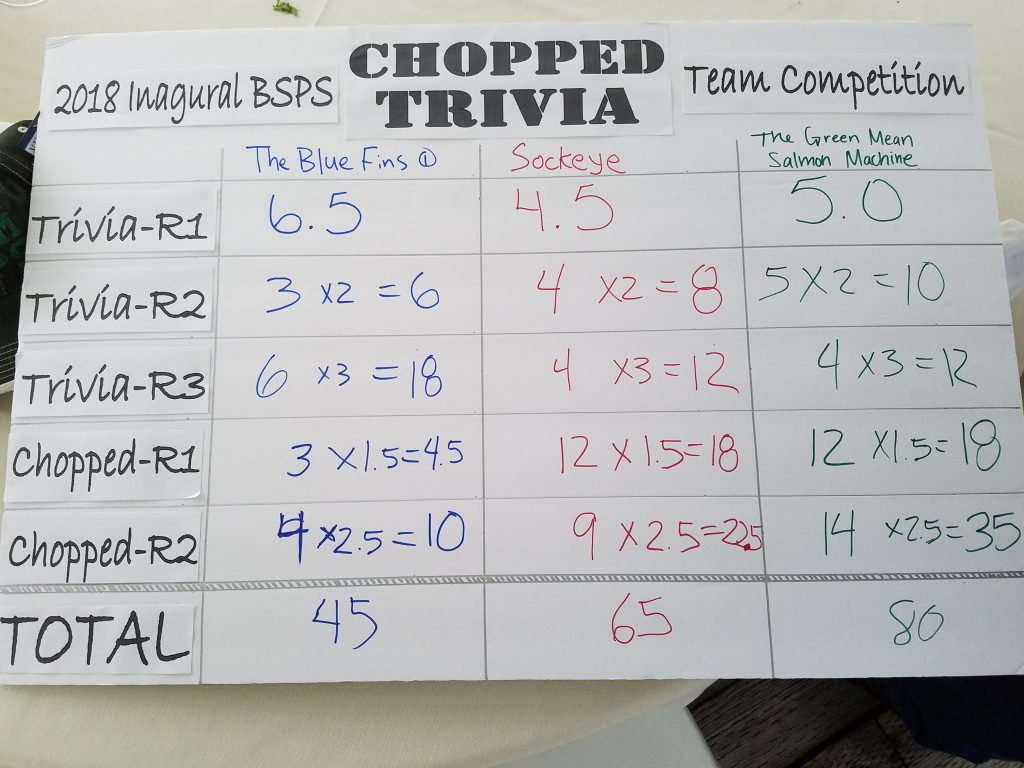 CHOPPED
TRIVIA
2018 Inagural BSPS
Team Competition
The Blue Fins ①
Sockeye
The Green Mean
Salmon Machine
Trivia-R1
6.5
4.5
5.0
Trivia-R2
3 x2 = 6
4 x2 = 8
5 x 2 = 10
Trivia-R3
6 x3 = 18
4 x3 = 12
4 x3 = 12
Chopped-R1
3 x1.5=4.5
12 x 1.5=18
12 x1.5= 18
Chopped-R2
4 x2.5 = 10
9 x 2.5=22.5
14 x2.5= 35
TOTAL
45
65
80